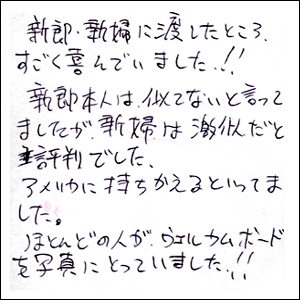 新郎・新婦に渡したところ、
すごく喜んでいました!!
新郎本人は、似てないと言って
ましたが、新婦は激似だと
評判でした、
アメリカに持ちかえるといってま
した。
ほとんどの人が、ウェルカムボード
を写真にとっていました!!